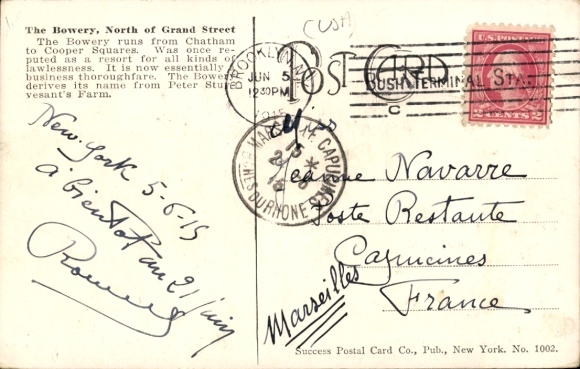 The Bowery, North of Grand Street
The Bowery runs from Chatham
to Cooper Squares. Was once re-
puted as a resort for all kinds of
lawlessness. It is now essentially a
business thoroughfare. The Bowery
derives its name from Peter Stuy-
vesant's Farm.
New-York 5-6-15
à bientôt au 21 juin
(USA)
POST CARD
BROOKLYN, N.Y.
JUN 5
12 30 PM
1915
BUSH TERMINAL STA.
C
U.S. POSTAGE
2 CENTS 2
MARSEILLE CAPUCINES
BCHES DU RHONE
Jeanne Navarre
Poste Restante
Capucines
Marseilles
France
Success Postal Card Co., Pub., New York. No. 1002.